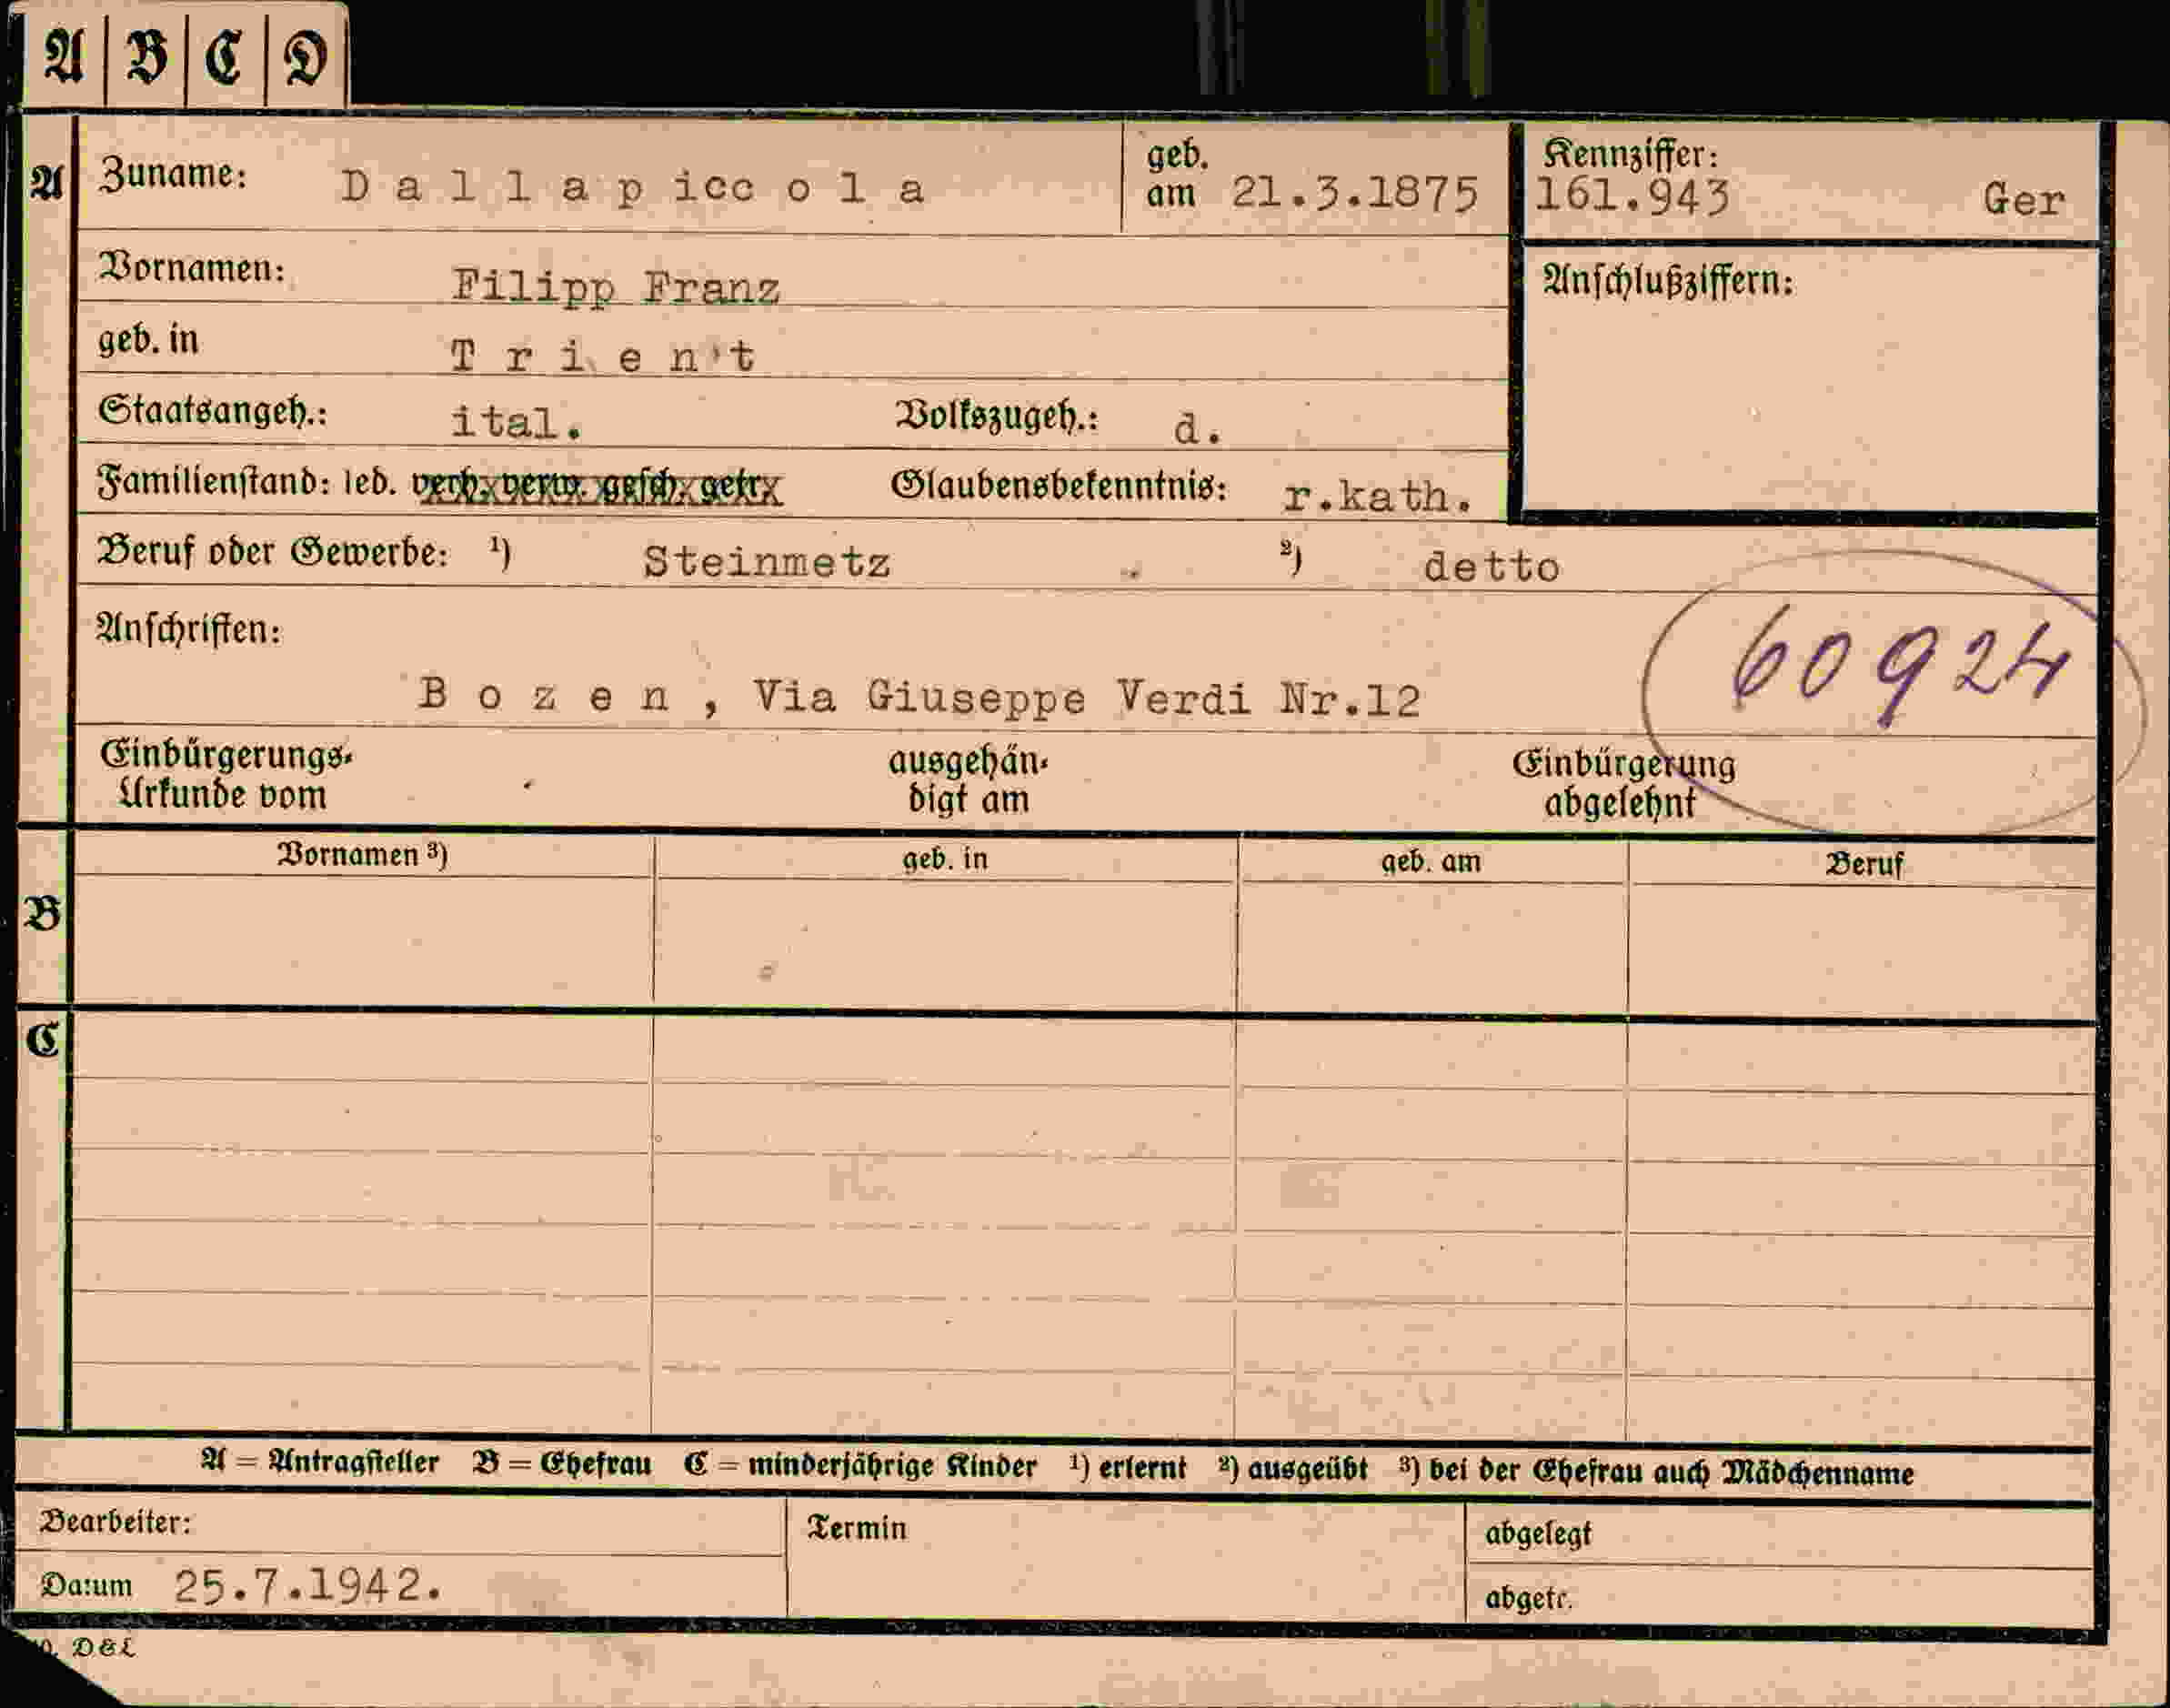 A B C D
A Zuname: Dallapiccola geb. am 21.3.1875 Kennziffer: 161.943 Ger
Vornamen: Filipp Franz Anschlußziffern:
geb. in Trient
Staatsangeh.: ital. Volkszugeh.: d.
Familienstand: led. verh. verw. gesch. getr. Glaubensbekenntnis: r.kath.
Beruf oder Gewerbe: ¹) Steinmetz ²) detto
Anschriften: 60924
Bozen, Via Giuseppe Verdi Nr.12
Einbürgerungs- ausgehän- Einbürgerung
Urkunde vom digt am abgelehnt
Vornamen ³) geb. in geb. am Beruf
B
C
A = Antragsteller B = Ehefrau C = minderjährige Kinder ¹) erlernt ²) ausgeübt ³) bei der Ehefrau auch Mädchenname
Bearbeiter: Termin abgelegt
Datum 25.7.1942. abgetr.
D&L